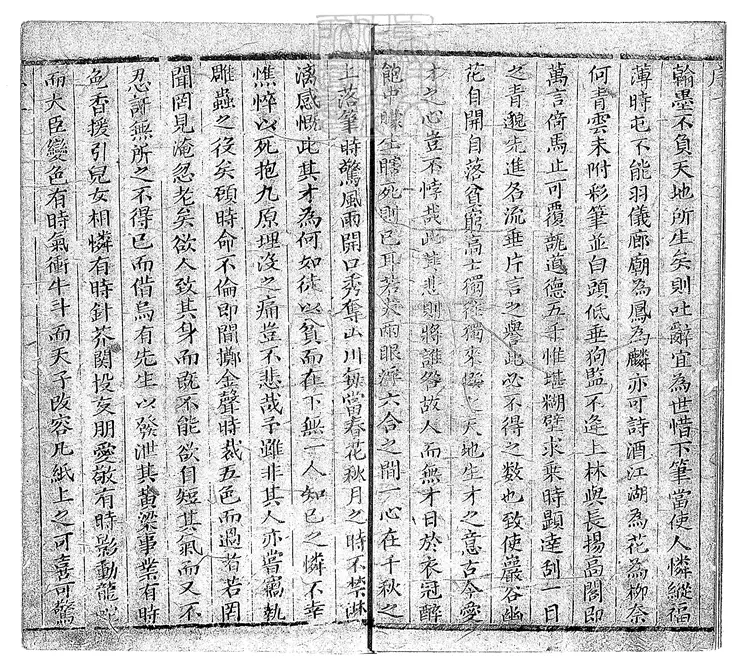 翰墨不負天地所生矣則吐辭宜為世惜下筆當使人憐縱福
薄時屯不能羽儀廊廟為鳳為麟亦可詩酒江湖為花為柳奈
何青雲未附彩筆並白頭低垂狗監不逢上林與長揚高閣即
萬言倚馬止可覆瓿道德五千惟堪糊壁求乘時顯達刮一目
之青邀先進名流垂片言之譽此必不得之数也致使巖谷幽
花自開自落貧窮高士獨往獨來揆之天地生才之意古今愛
才之心豈不悖哉此其悲則將誰咎故人而無才日於衣冠醉
飽中矇生瞎死則已耳若夫兩眼浮六合之間一心在千秋之
上落筆時驚風雨開口秀奪山川每當春花秋月之時不禁淋
漓感慨此其才為何如徒以貧而在下無一人知己之憐不幸
憔悴以死抱九原埋沒之痛豈不悲哉予雖非其人亦嘗竊執
雕蟲之役矣顧時命不倫即間擲金聲時裁五色而過者若罔
聞罔見淹忽老矣欲人致其身而既不能欲自短其氣而又不
忍計無所之不得已而借烏有先生以發泄其黃粱事業有時
色香援引兒女相憐有時針芥関投友朋愛敬有時影動龍蛇
而大臣變色有時氣衝牛斗而天子改容凡紙上之可喜可驚